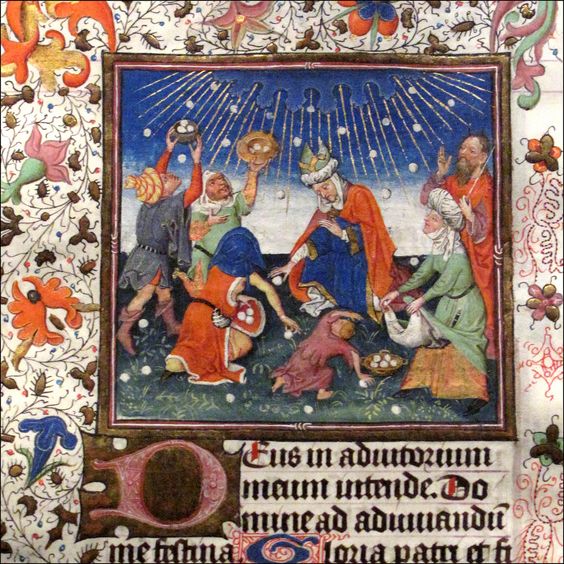 Deus in adiutorium
meum intende. Do
mine ad adiuuandū
me festina Gloria patri et fi